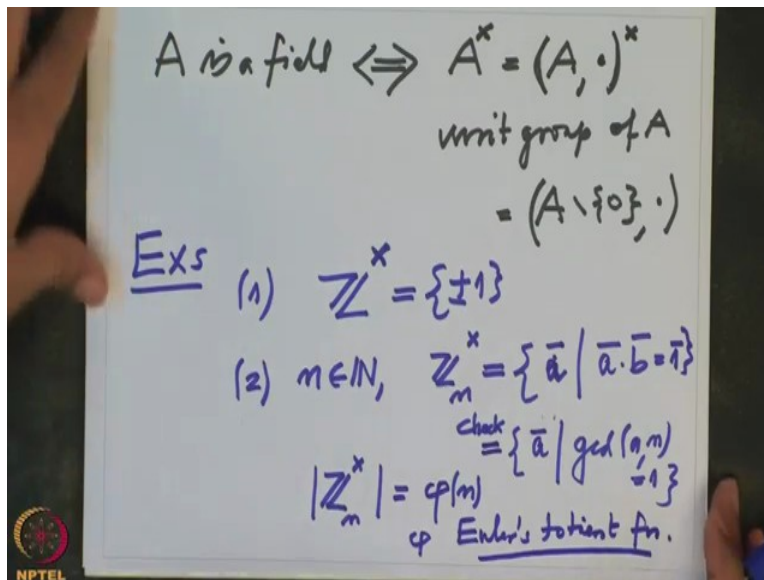 A is a field ⟺ A^× = (A, ·)^×
unit group of A
= (A \ {0}, ·)
Exs
(1) ℤ^× = {±1}
(2) n ∈ ℕ, ℤ_n^× = { ā | ā · b̄ = 1̄ }
check
= { ā | gcd(a, n)
= 1 }
|ℤ_n^×| = φ(n)
φ Euler's totient fn.
NPTEL